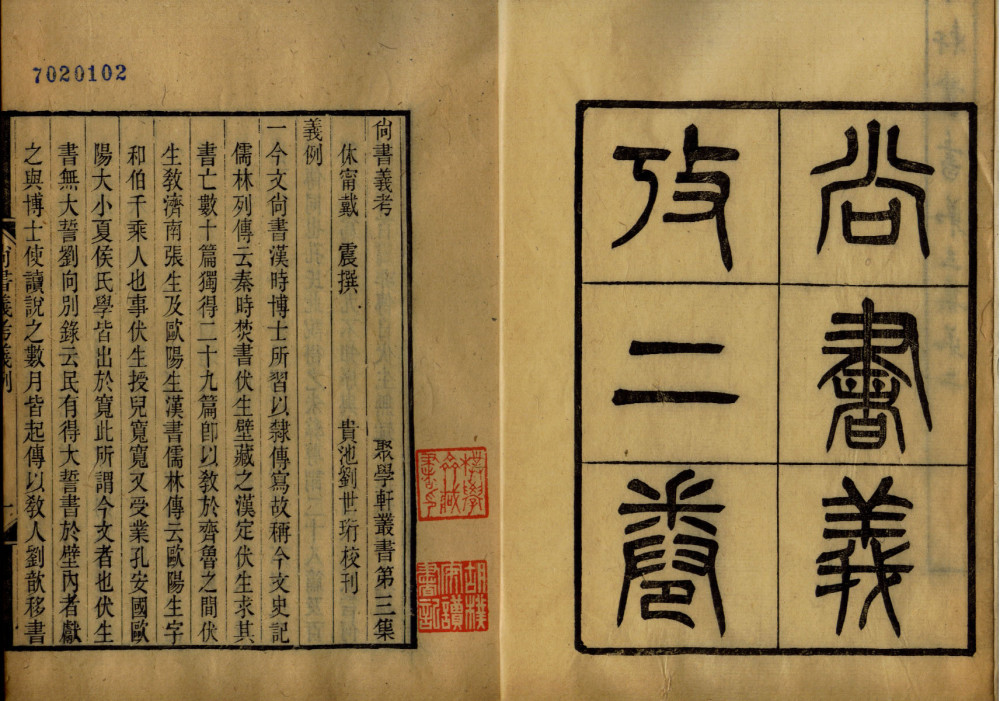 尚書義
攷二卷
7020102
尙書義考 聚學軒叢書第三集
休甯戴 震撰 貴池劉世珩校刊
義例
一今文尙書漢時博士所習以隸傳寫故稱今文史記
儒林列傳云秦時焚書伏生壁藏之漢定伏生求其
書亡數十篇獨得二十九篇卽以敎於齊魯之間伏
生敎濟南張生及歐陽生漢書儒林傳云歐陽生字
和伯千乘人也事伏生授兒寬寬又受業孔安國歐
陽大小夏侯氏學皆出於寬此所謂今文者也伏生
書無大誓劉向別錄云民有得大誓書於壁內者獻
之與博士使讀說之數月皆起傳以敎人劉歆移書
尙書義考義例
一
樸學
齋藏
書印
胡樸
安讀
書記